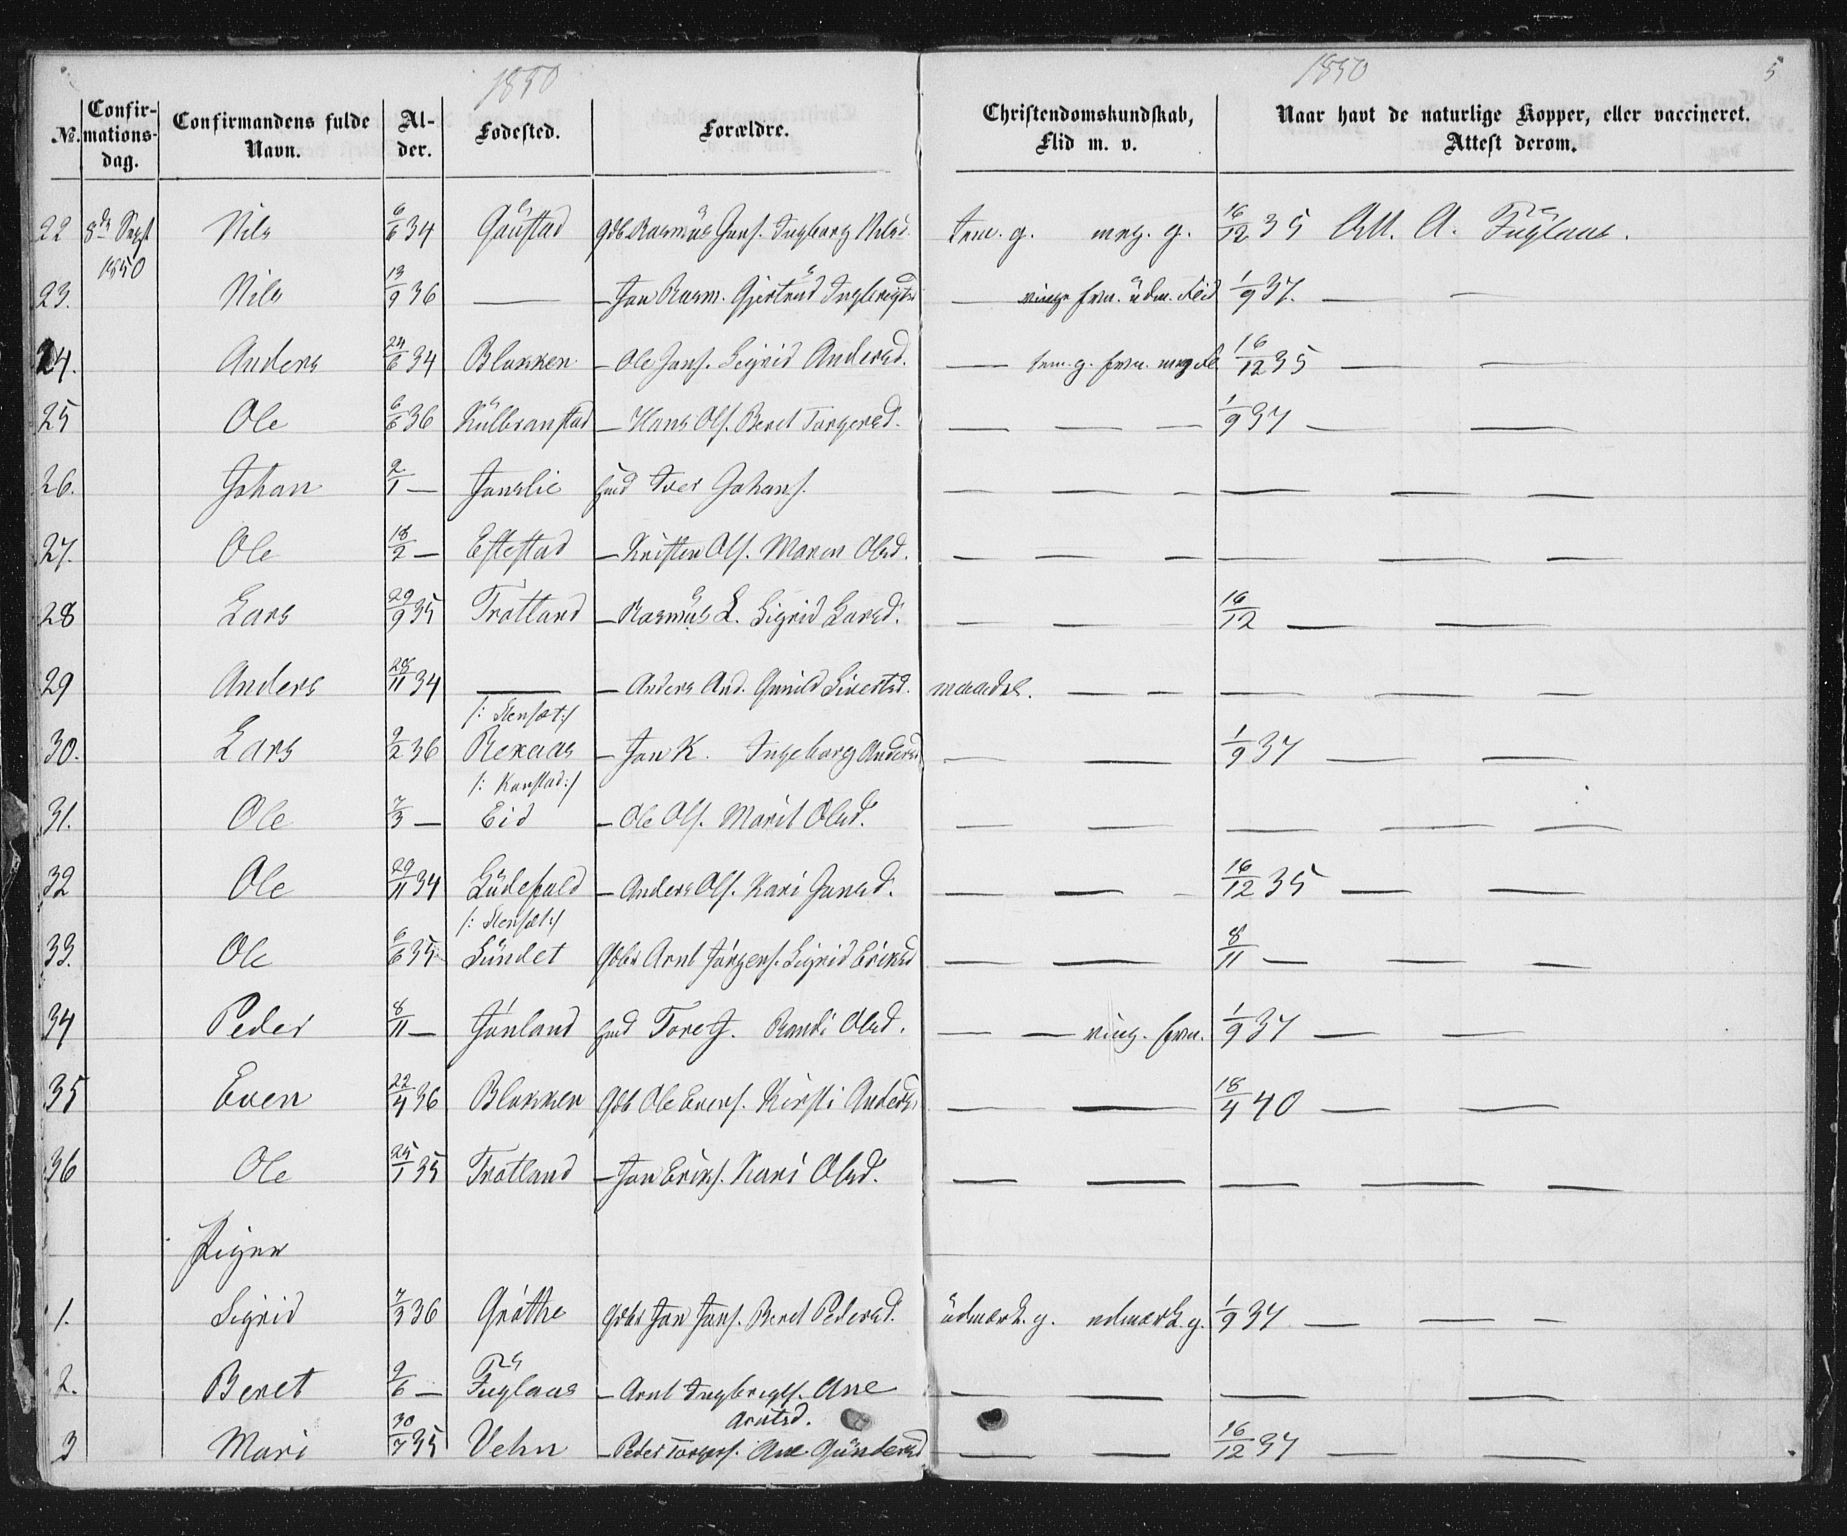 1850
1850
5
No.
Confir-
mations-
dag.
Confirmandens fulde
Navn.
Al-
der.
Fødested.
Forældre.
Christendomskundskab,
Flid m. v.
Naar havt de naturlige Kopper, eller vaccineret.
Attest derom.
22 8de Sept 1850 Nils 6/6 34 Gaustad Gdb. Rasmus Jons. Ingeborg Nilsd. tem. g. meg. g. 16/12 35 Att. A. Fuglaas.
23. Nils 13/9 36 — — Jon Rasm. Gjertrud Ingebrigtsd — 1/9 37. — —
24. Anders 24/6 34 Blakken — Ole Jons. Sigrid Andersd. — tem. g. 16/12 35 — —
25 Ole 6/6 36 — Hans Ols. Beret Torgersd. — — — 1/9 37 — —
26. Johan 2/1 — Jonslie Iver Johans. — — — — — —
27. Ole 18/2 — Eftestad — Kristen Ols. Maren Olsd. — — — — — —
28 Lars 29/9 35 Trøtland — Rasmus L. Sigrid Larsd. — — — 16/12 — —
29 Anders 28/11 34 — — Anders And. Gunild Sivertsd. maadel. — — — — —
/: Stensæt :/
30. Lars 9/2 36 Rekaas — Jon K. Ingeborg Andersd — — 1/9 37 — —
/: Kanstad :/
31. Ole 7/3 — Eid — Ole Ols. Marit Olsd. — — — — —
32 Ole 29/11 34 — Anders Ols. Kari Jonsd. — — - 16/12 35 — —
/: Stensæt :/
33. Ole 6/6 35 Sundet Gdbr Arnt Jørgens. Sigrid Eriksd — — 8/11 — — —
34 Peder 8/11 — Jønland Tore J. Randi Olsd. — — ring. frm. 1/9 37 — —
35 Even 22/4 36 Blakken Gdb Ole Evens. Kirsti Andersd — — 18/4 40 — —
36 Ole 25/1 35 Trøtland — Jon Eriks. Kari Olsd. — — — — —
Piger
1. Sigrid 7/3 36 Grøthe Gdbr Jon Jons. Beret Pedersd. udmærk. g. udmærk. g. 1/9 37 — — —
2. Beret 9/6 — Fuglaas — Arnt Ingebrigts. Ane
Arntsd. — — — —
3 Mari 30/7 35 Vehn — Peder Torgers. Ane Gundersd — — 16/12 37 — —